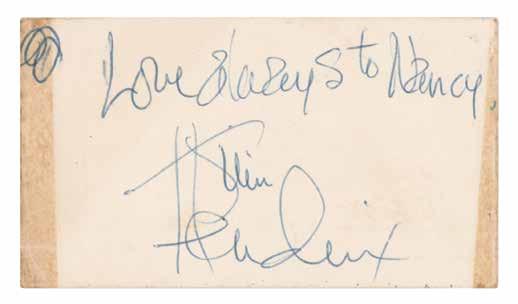 Love always to Nancy.
Jimi
Hendrix